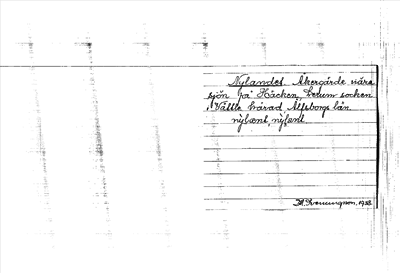 Nylandet. Åkergärde nära
sjön på Häcken, Lerum socken
Vättle härad Älfsborgs län.
nýlænt, nýlænt.
H. Svenningson, 1928.